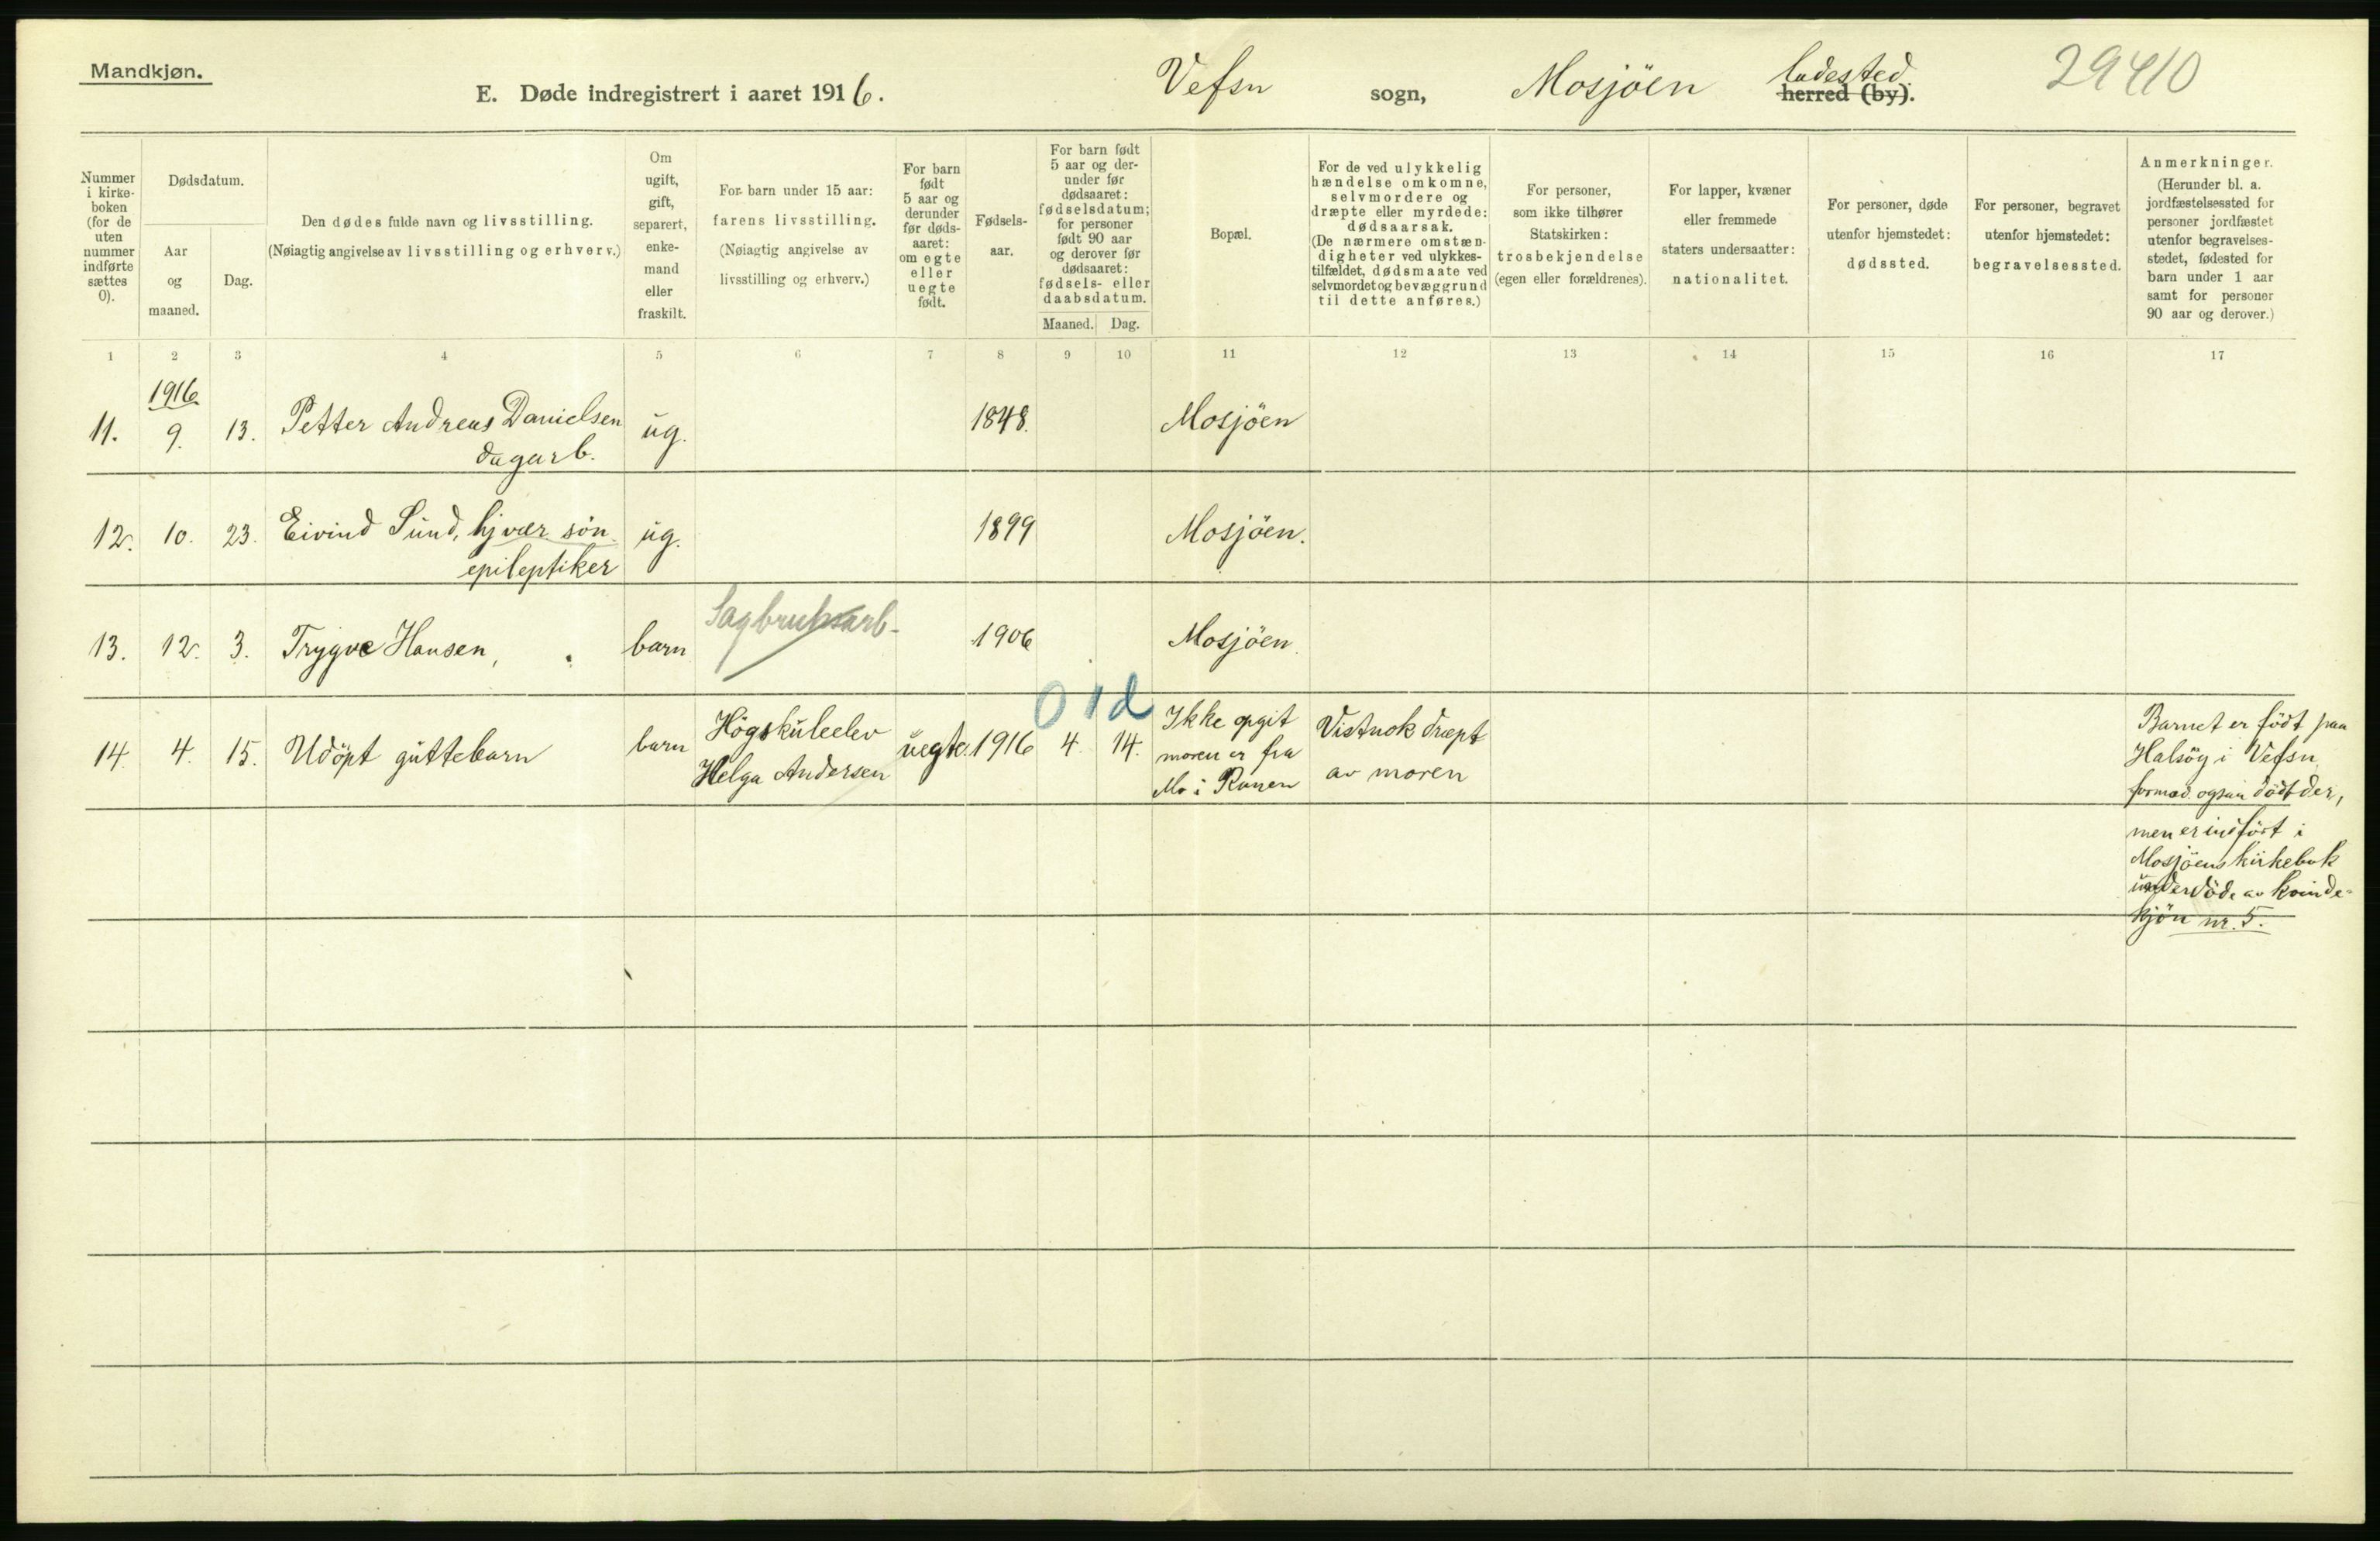 Mandkjøn.
E. Døde indregistrert i aaret 1916.
Vefsn sogn, Mosjöen ladested.
herred (by).
29410
Nummer i kirke-boken (for de uten nummer indførte sættes 0).
Dødsdatum.
Aar og maaned.
Dag.
Den dødes fulde navn og livsstilling.
(Nøiagtig angivelse av livsstilling og erhverv.)
Om ugift, gift, separert, enke-mand eller fraskilt.
For barn under 15 aar:
farens livsstilling.
(Nøiagtig angivelse av livsstilling og erhverv.)
For barn født 5 aar og derunder før døds-aaret: om egte eller uegte født.
Fødsels-aar.
For barn født 5 aar og der-under før dødsaaret: fødselsdatum; for personer født 90 aar og derover før dødsaaret: fødsels- eller daabsdatum.
Maaned. Dag.
Bopæl.
For de ved ulykkelig hændelse omkomne, selvmordere og dræpte eller myrdede: dødsaarsak.
(De nærmere omstæn-digheter ved ulykkes-tilfældet, dødsmaate ved selvmordet og bevæggrund til dette anføres.)
For personer, som ikke tilhører Statskirken: trosbekjendelse (egen eller forældrenes).
For lapper, kvæner eller fremmede staters undersaatter: nationalitet.
For personer, døde utenfor hjemstedet: dødssted.
For personer, begravet utenfor hjemstedet: begravelsessted.
Anmerkninger.
(Herunder bl. a. jordfæstelsessted for personer jordfæstet utenfor begravelses-stedet, fødested for barn under 1 aar samt for personer 90 aar og derover.)
1 2 3 4 5 6 7 8 9 10 11 12 13 14 15 16 17
1916
11. 9. 13. Petter Andreas Danielsen ug. 1848. Mosjöen
dagarb.
12. 10. 23. Eivind Sund, hjvær. sön. ug. 1899 Mosjöen.
epileptiker
13. 12. 3. Trygve Hansen, barn Sagbruksarb- 1906 Mosjöen.
0 1 d
14. 4. 15. Udöpt guttebarn barn Högskuleelev Helga Andersen uegte. 1916 4. 14. Ikke opgit moren er fra Mo i Ranen Vistnok dræpt av moren
Barnet er födt paa
Halsöy i Vefsn,
formod. ogsaa död der,
men er indfört i
Mosjöens kirkebok
under döde av kvinde-
kjön nr. 5.